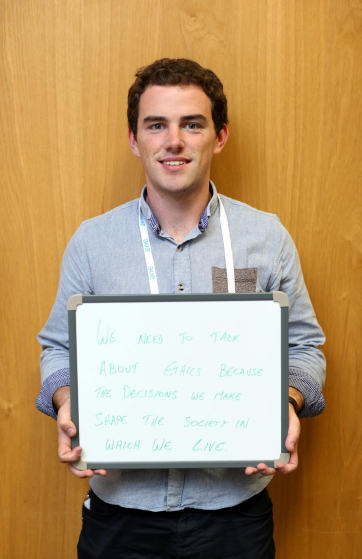 We need to talk
about Ethics because
the decisions we make
shape the society in
which we live.